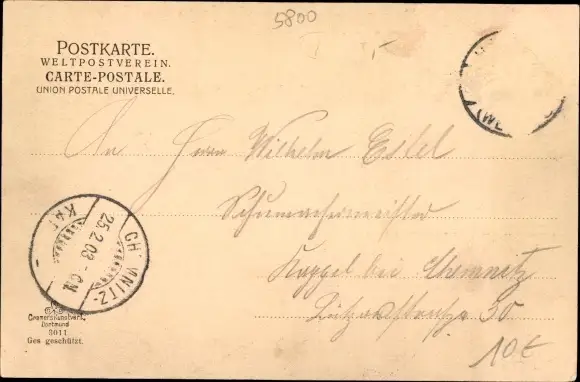 5800
POSTKARTE.
WELTPOSTVEREIN.
CARTE-POSTALE.
UNION POSTALE UNIVERSELLE.
An Herrn Wilhelm Estel
Schumachermeister
Kappel bei Chemnitz
50
10€
CHEMNITZ-
KAP
25.2.03.
-6N
(WE
Cramers Kunstverl.
Dortmund
3011
Ges geschützt.